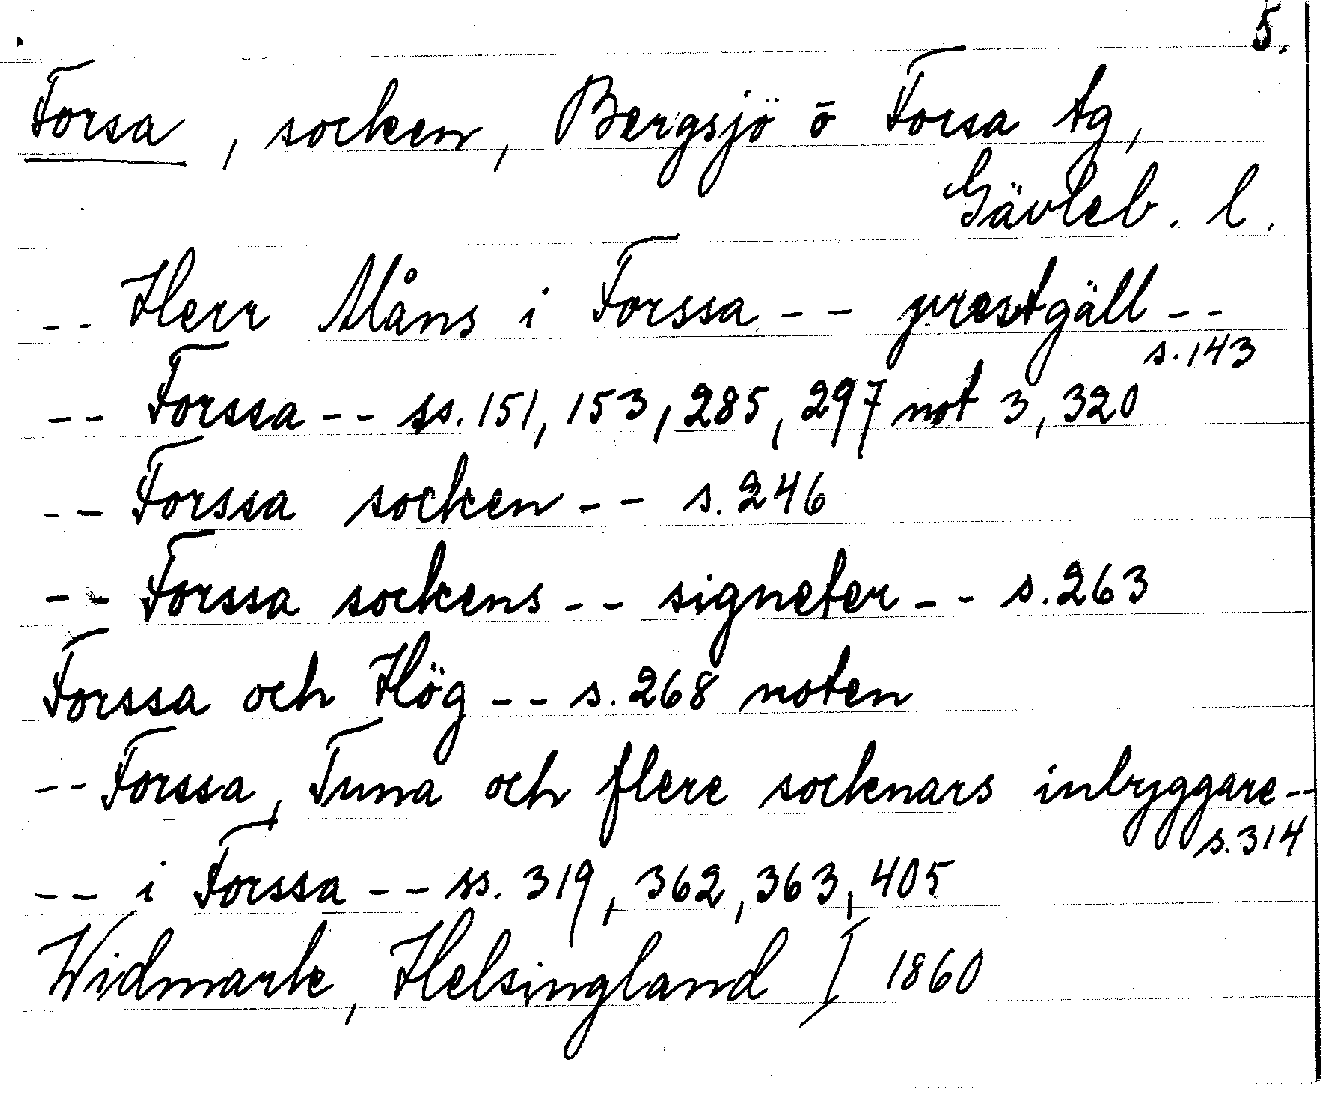 5.
Forsa, socken, Bergsjö o Forsa tg,
Gävleb. l.
-- Herr Måns i Forssa -- prestgäll --
s. 143
-- Forssa -- ss. 151, 153, 285, 297 not 3, 320
-- Forssa socken -- s. 246
-- Forssa sockens -- signeter -- s. 263
Forssa och Hög -- s. 268 noten
-- Forssa, Tuna och flere socknars inbyggare --
s. 314
-- i Forssa -- ss. 319, 362, 363, 405
Widmark, Helsingland I 1860